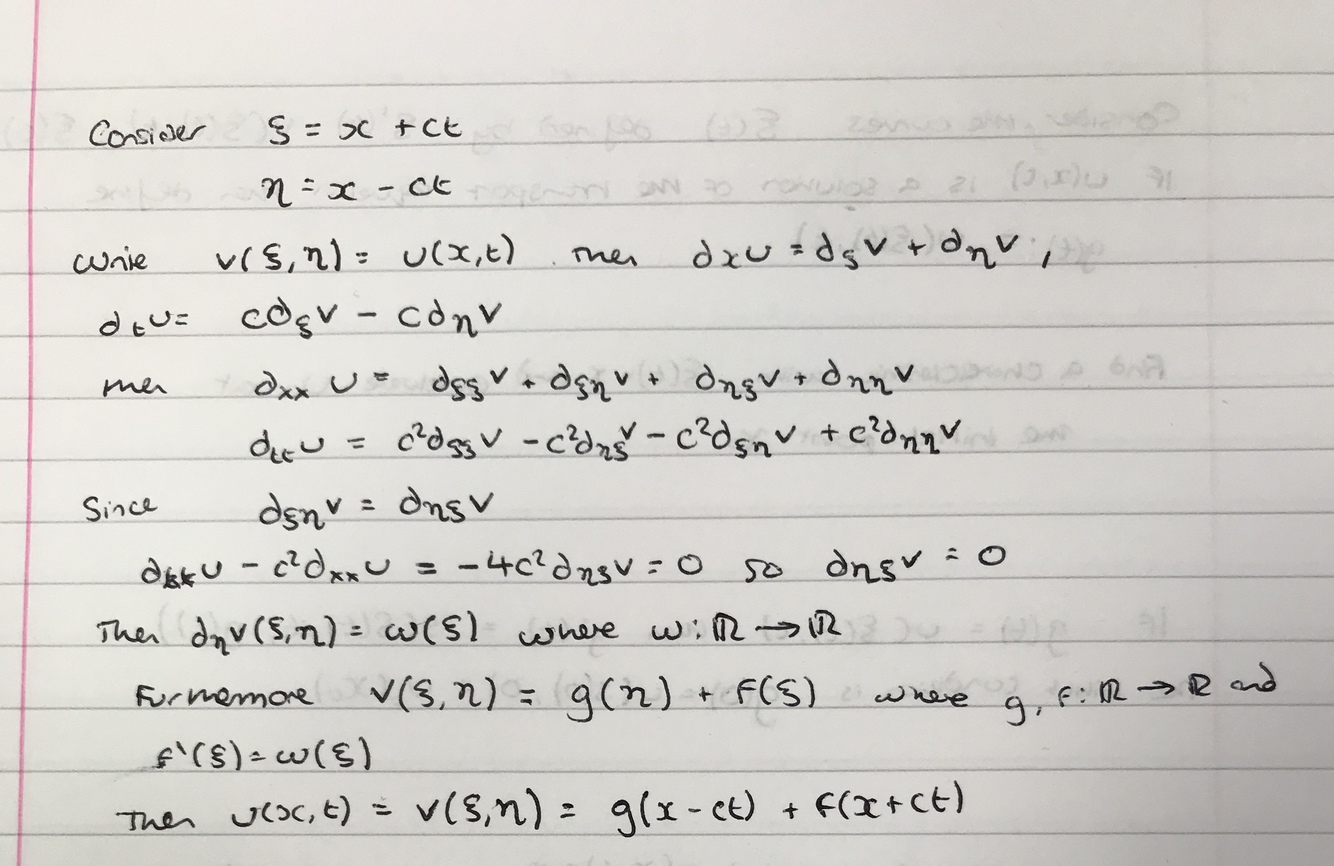 Consider ξ = x + ct
η = x - ct
Write v(ξ,η) = u(x,t). Then ∂xu = ∂ξv + ∂ηv,
∂tu = c∂ξv - c∂ηv
Then ∂xxu = ∂ξξv + ∂ξηv + ∂ηξv + ∂ηηv
∂ttu = c²∂ξξv - c²∂ηξv - c²∂ξηv + c²∂ηηv
Since ∂ξηv = ∂ηξv
∂ttu - c²∂xxu = -4c²∂ηξv = 0 so ∂ηξv = 0
Then ∂ηv(ξ,η) = w(ξ) where w: ℝ → ℝ
Furthermore v(ξ,η) = g(η) + f(ξ) where g, f: ℝ → ℝ and
f'(ξ) = w(ξ)
Then u(x,t) = v(ξ,η) = g(x - ct) + f(x + ct)